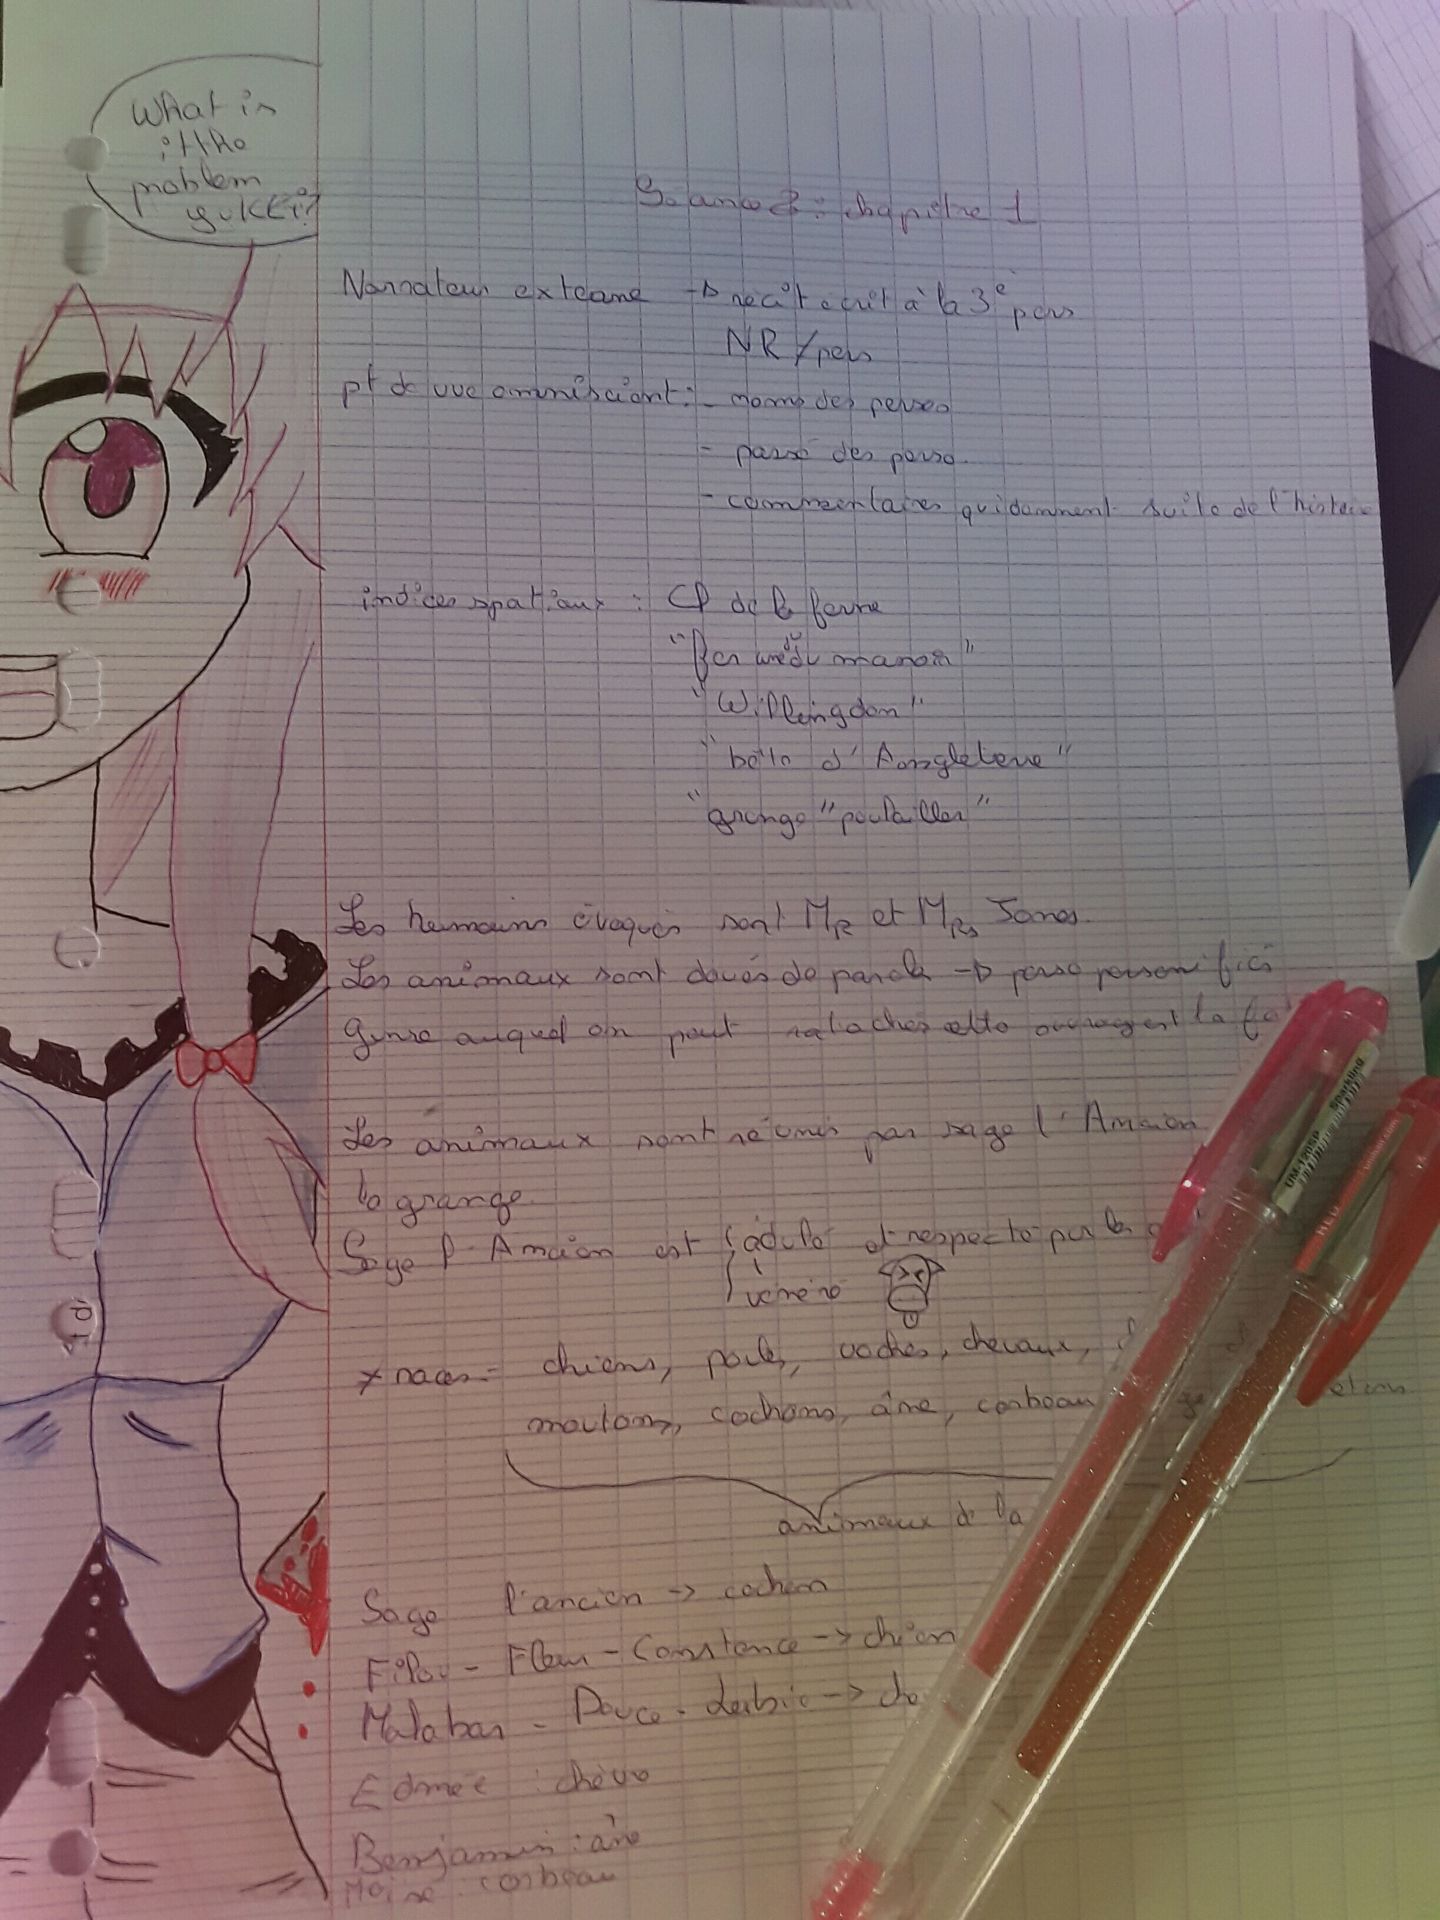 What is
the
problem
yukki?
Séance 2 : chapitre 1
Narrateur externe -> récit écrit à la 3e pers
NR / pers
pt de vue omniscient : - noms des perso
- passé des perso
- commentaires qui donnent suite de l'histoire
indices spatiaux : CP de la ferme
"ferme du manoir"
"Willingdon"
"bêtes d'Angleterre"
"grange" "poulailler"
Les humains évoqués sont MR et MRs Jones.
Les animaux sont doués de parole -> perso personifiés
Genre auquel on peut ratacher cette ouvrage est la
Les animaux sont réunis par sage l'Ancien
la grange.
Sage l'Ancien est adulé et respecté par les
vénéré
≠ races = chiens, poules, vaches, chevaux,
moutons, cochons, âne, corbeau
animaux de la
Sage l'ancien -> cochon
Filou - Fleur - Constance -> chien
Malabar - Douce - Lubie -> che
Edmée : chèvre
Benjamin : âne
Moïse : corbeau
UM-120SP
Sparkling
RED